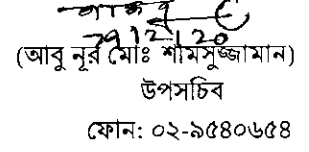 ২৭।১২।২০
(আবু নূর মোঃ শামসুজ্জামান)
উপসচিব
ফোন: ০২-৯৫৪০৬৫৪